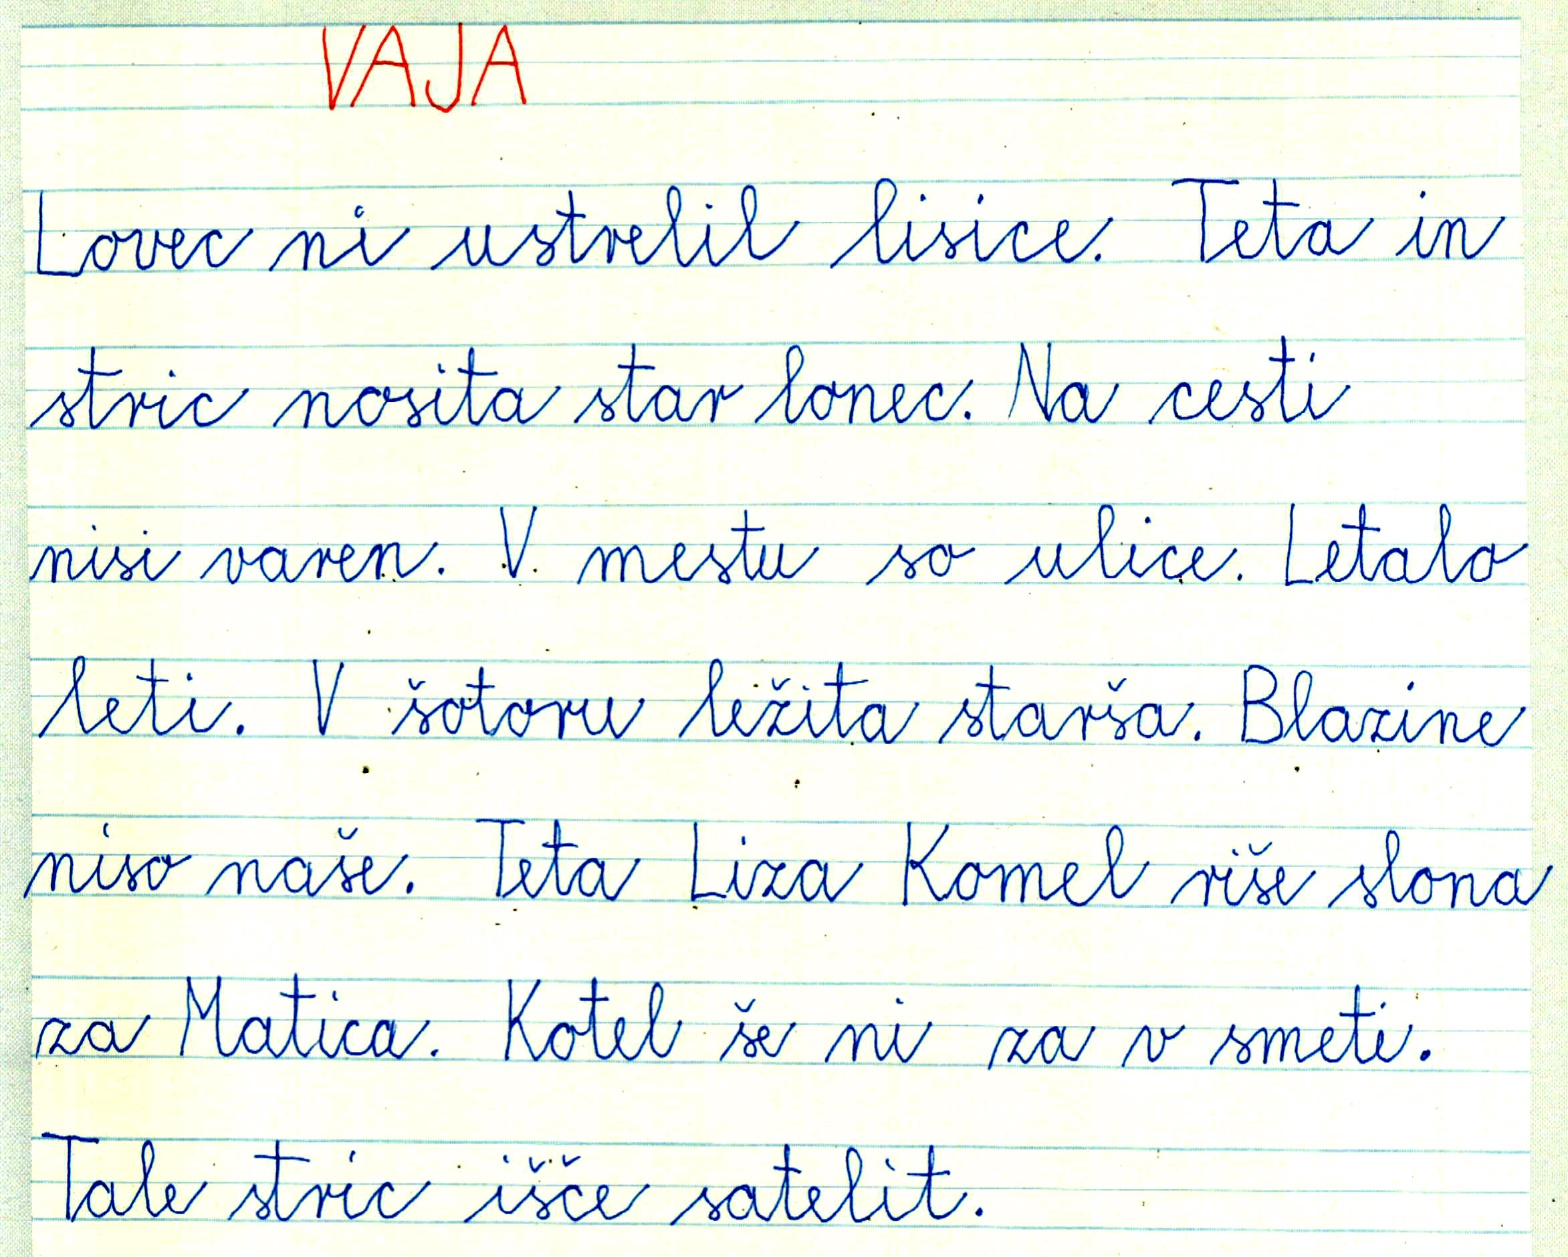 VAJA
Lovec ni ustrelil lisice. Teta in
stric nosita star lonec. Na cesti
nisi varen. V mestu so ulice. Letalo
leti. V šotoru ležita starša. Blazine
niso naše. Teta Liza Komel riše slona
za Matica. Kotel še ni za v smeti.
Tale stric išče satelit.